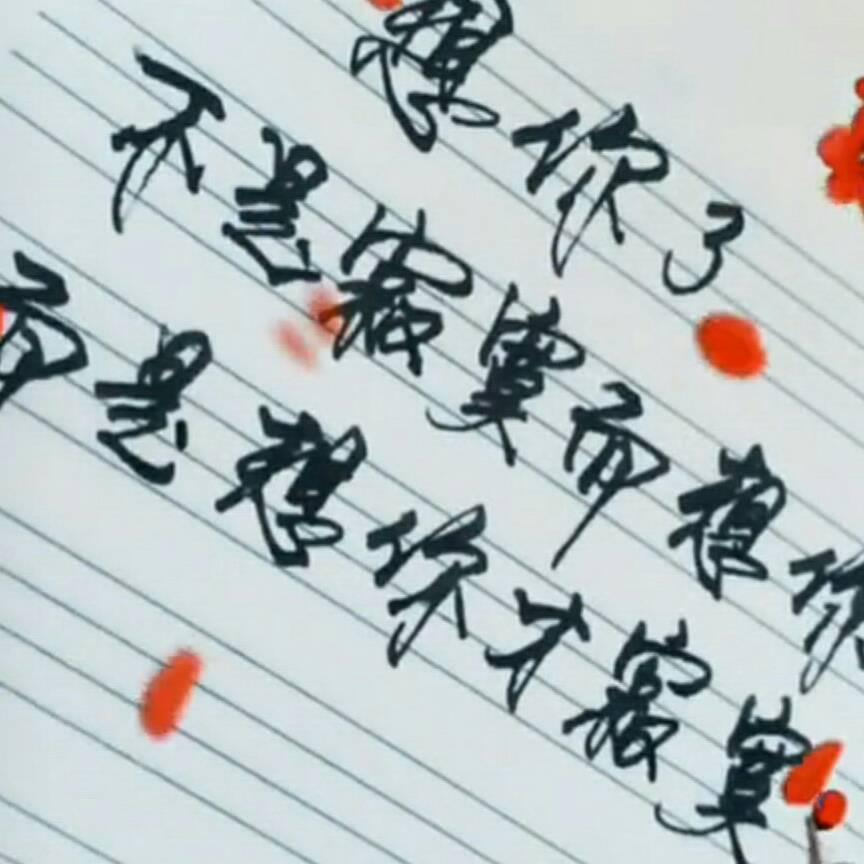 想你了
不是寂寞而想你
而是想你才寂寞